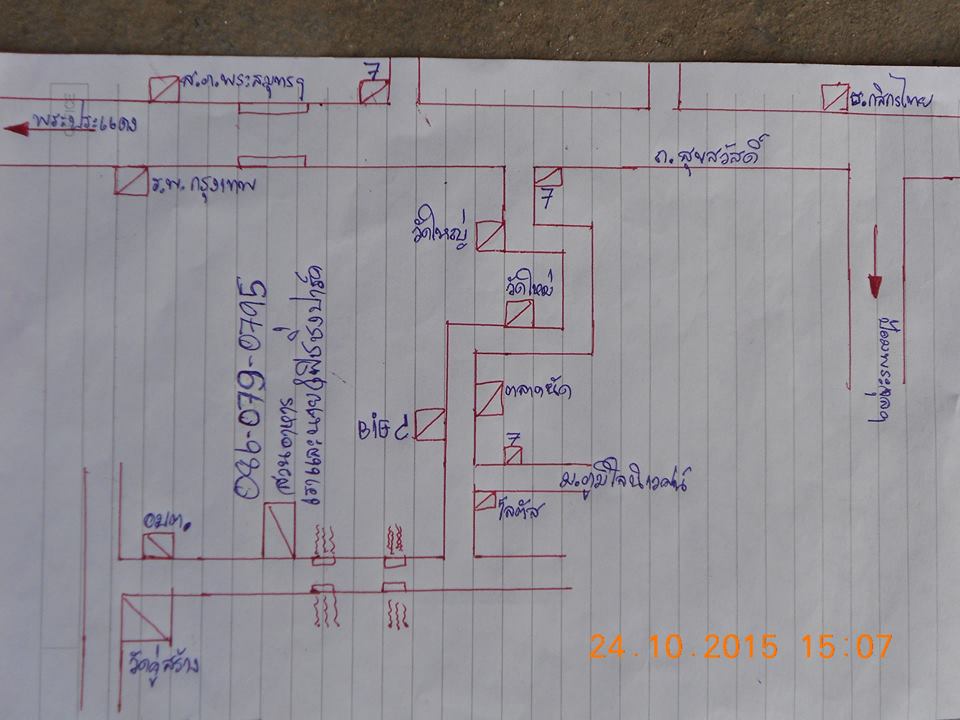 ส.ภ.พระสมุทรฯ
7
ธ.กสิกรไทย
พระประแดง
ถ.สุขสวัสดิ์
ร.พ.กรุงเทพ
7
วัดใหญ่
วัดใหม่
086-079-0795
สวนอาหาร
เราและนายฟิชชิ่งปาร์ค
ป้อมพระจุลฯ
ตลาดนัด
BIG C
7
ม.ภูมิใจนิเวศน์
โลตัส
อบต.
วัดคู่สร้าง
24.10.2015 15:07